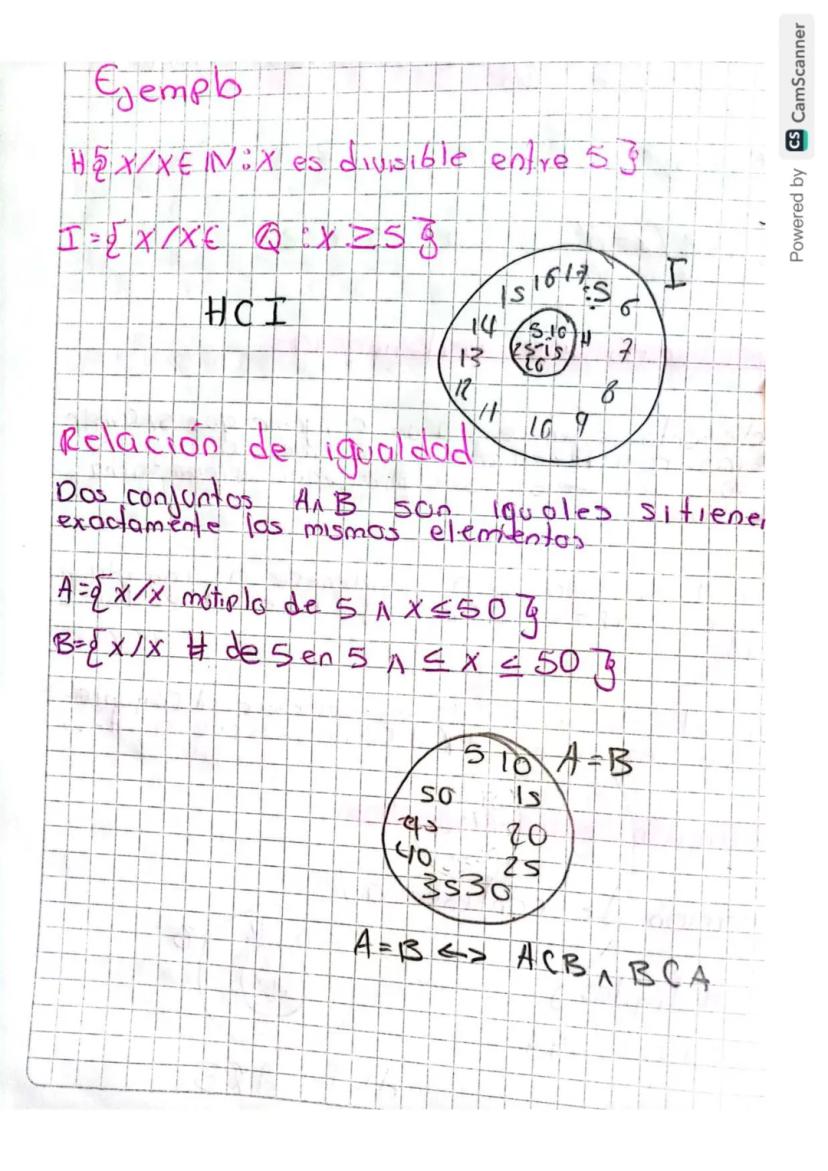 Ejemplo
H{X/X∈ℕ:X es divisible entre 5}
I={X/X∈ ℚ:X≥5}
H⊂I
I
15 16 17 :5 6
14 5-10 H 7
13 25-15
20
12 8
11 10 9
Relación de igualdad
Dos conjuntos A∧B son iguales si tienen
exactamente los mismos elementos
A={X/X mótiplo de 5 ∧ X≤50}
B={X/X # de 5 en 5 ∧ ≤ X ≤ 50}
5 10 A=B
50 15
45 20
40 25
35 30
A=B <-> A⊂B ∧ B⊂A
Powered by CS CamScanner